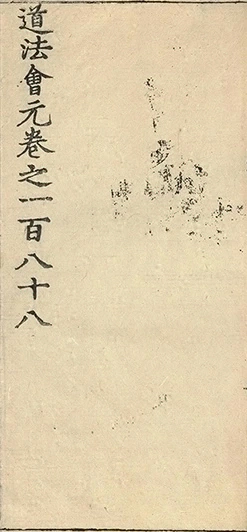 道法會元卷之一百八十八